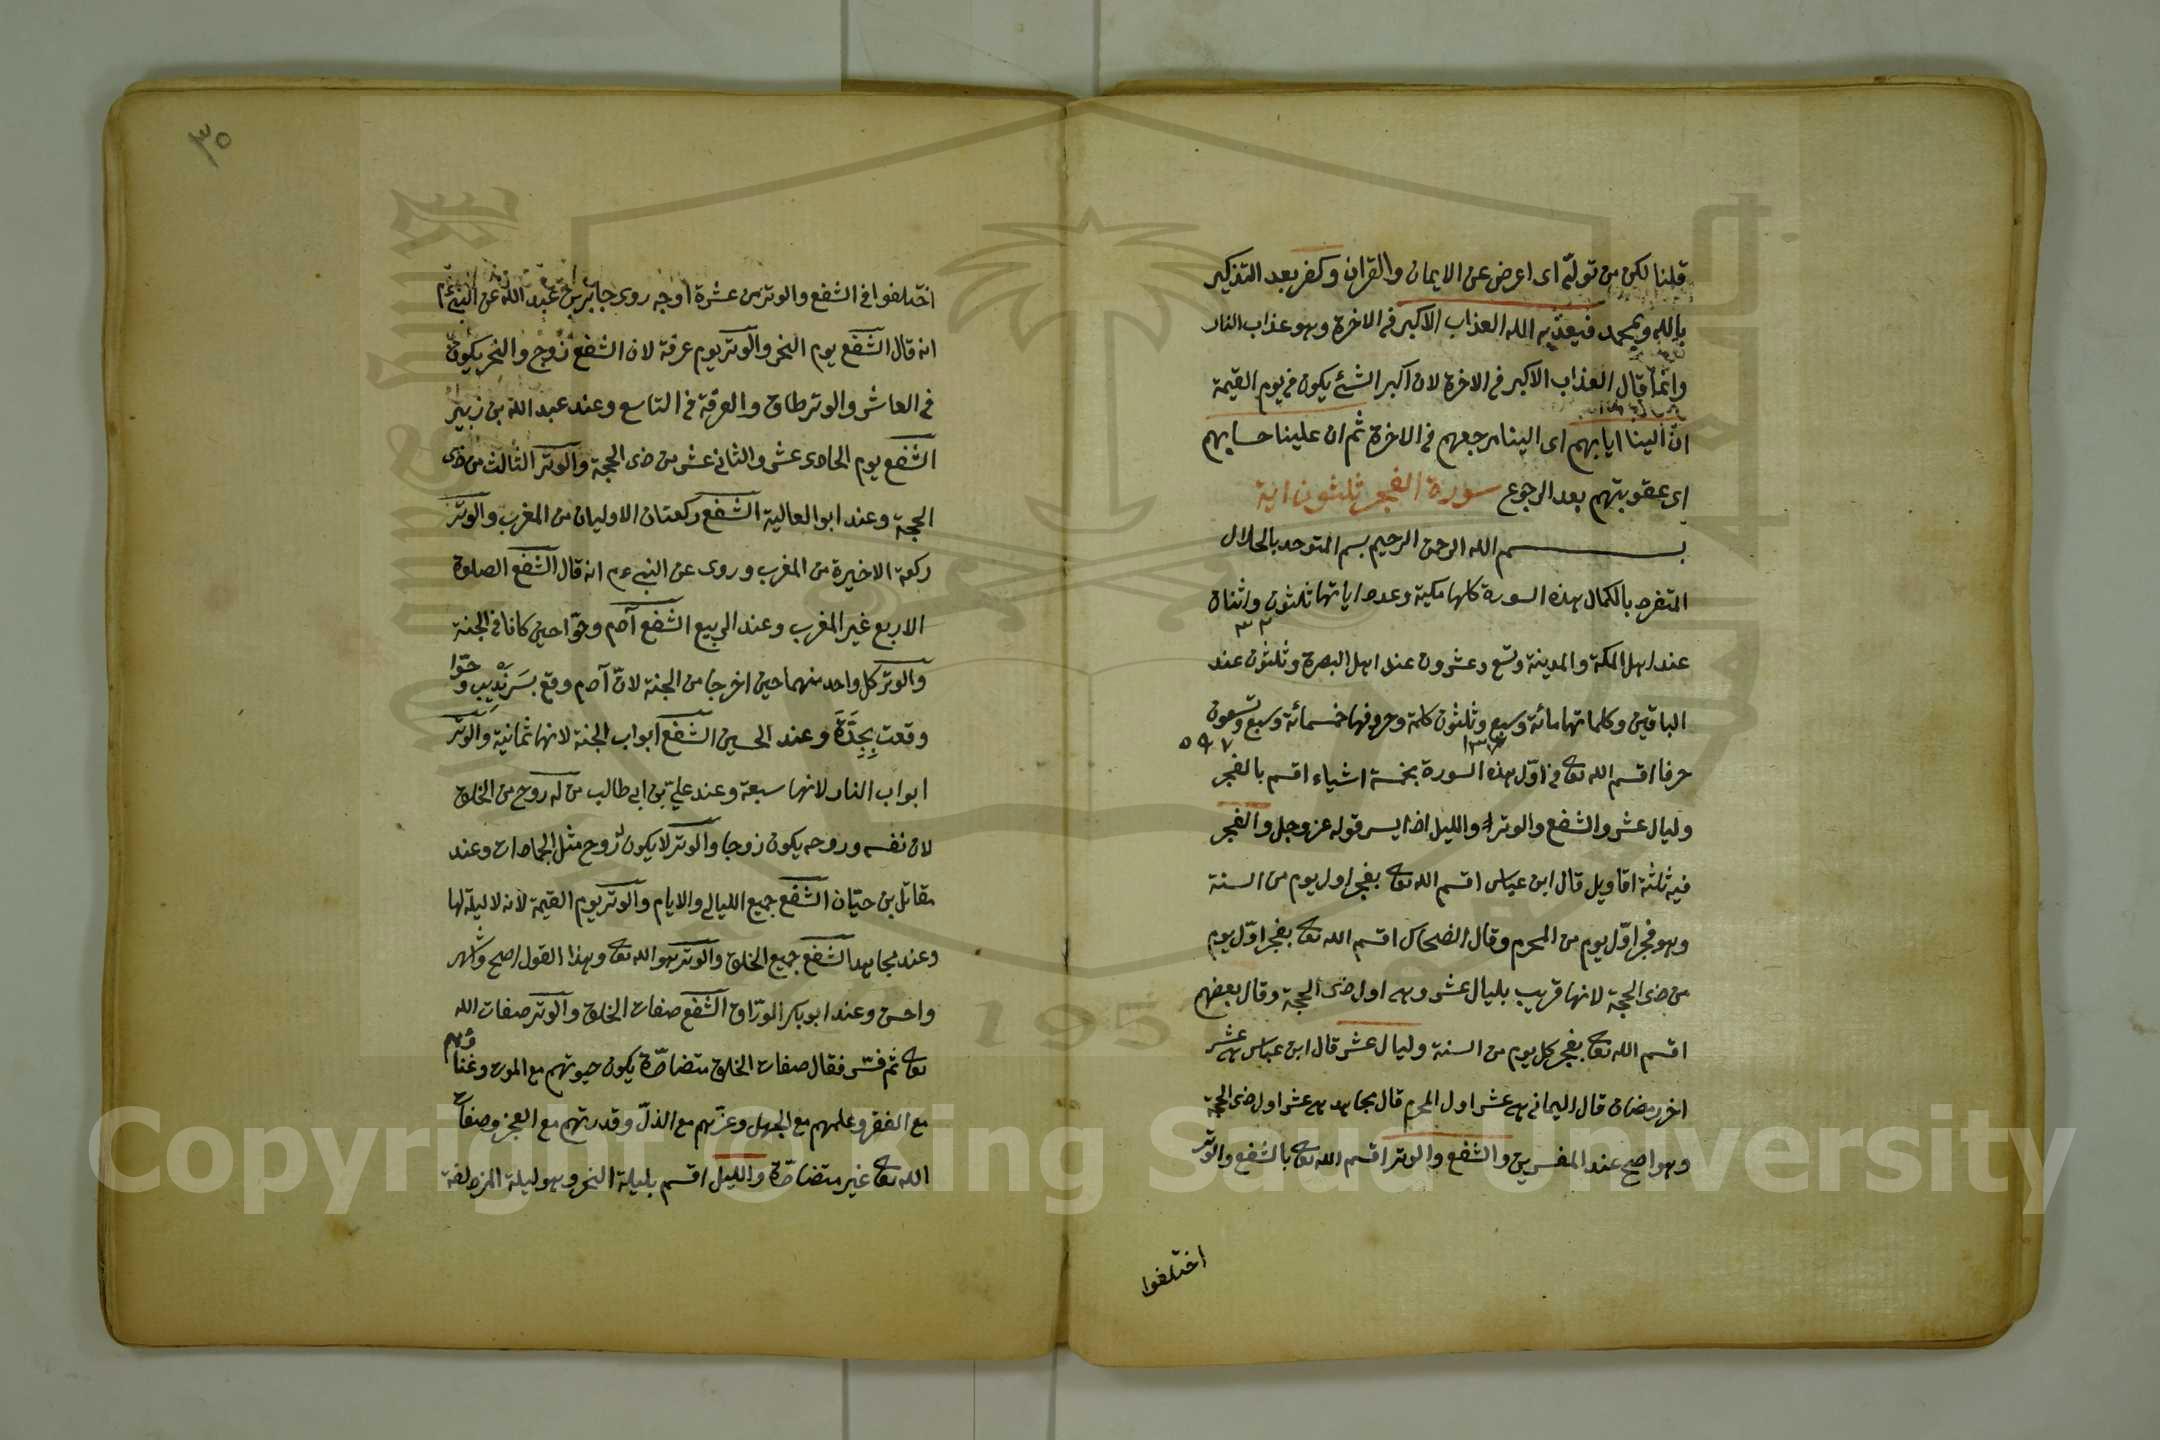 قلنا لكن من تولّى اى اعرض عن الايمان والقران وكفر بعد التذكير
بالله وبمحمد فيعذبه الله العذاب الاكبر فى الاخرة وهو عذاب النار
وانما قال العذاب الاكبر فى الاخرة لان اكبر الشئ يكون فى يوم القيمة
انّ الينا ايابهم اى الينا مرجعهم فى الاخرة ثم ان علينا حسابهم
اى عقوبتهم بعد الرجوع سورة الفجر ثلثون اية
بسم الله الرحمن الرحيم بسم المتوحد بالجلال
المتفرد بالكمال هذه السورة كلها مكية وعدد اياتها ثلثون واثنان
٣٢
عند اهل المكة والمدينة وتسع وعشرون عند اهل البصرة وثلثون عند
الباقين وكلماتها مائة وسبع وثلثون كلمة وحروفها خمسمائة وسبع وتسعون
١٣٧ ٥٩٧
حرفا اقسم الله تعا فى اوّل هذه السورة بخمسة اشياء اقسم بالفجر
وليال عشر والشفع والوتر والليل اذا يسر قوله عز وجل والفجر
فيه ثلثة اقاويل قال ابن عباس اقسم الله تعا بفجر اول يوم من السنة
وهو فجر اوّل يوم من المحرم وقال الضحاك اقسم الله تعا بفجر اوّل يوم
من ذى الحجة لانها قريب بليال عشر وهى اول ذى الحجة وقال بعضهم
اقسم الله تعا بفجر كل يوم من السنة وليال عشر قال ابن عباس هى عشر
اخر رمضان قال اليمانى هى عشر اول المحرم قال مجاهد هى عشر اول ذى الحجة
وهو اصح عند المفسرين والشفع والوتر اقسم الله تعا بالشفع والوتر
اختلفوا
٣٥
اختلفوا فى الشفع والوتر من عشرة اوجه روى جابر بن عبد الله عن النبى م
انه قال الشفع يوم النحر والوتر يوم عرفة لان الشفع زوج والنحر يكون
فى العاشر والوتر طاق والعرفة فى التاسع وعند عبد الله بن زبير
الشفع يوم الحادى عشر والثانى عشر من ذى الحجة والوتر الثالث من ذى
الحجة وعند ابو العالية الشفع ركعتان الاوليان من المغرب والوتر
ركعة الاخيرة من المغرب وروى عن النبى عم انه قال الشفع الصلوة
الاربع غير المغرب وعند الربيع الشفع آدم وحوّا حين كانا فى الجنة
والوتر كل واحد منهما حين اخرجا من الجنة لانّ آدم وقع بسرنديب وحوّا
وقعت بجدّة وعند الحسين الشفع ابواب الجنة لانها ثمانية والوتر
ابواب النار لانها سبعة وعند علىّ بن ابى طالب من له روح من الخلق
لان نفسه وروحه يكون زوجا والوتر لا يكون روح مثل الجمادات وعند
مقاتل بن حيّان الشفع جميع الليالى والايام والوتر يوم القيمة لانه لا ليلة لها
وعند مجاهد الشفع جميع الخلق والوتر هو الله تعا وهذا القول اصح واشهر
واحسن وعند ابو بكر الورّاق الشفع صفات الخلق والوتر صفات الله
تعا ثم فسّر فقال صفات الخلق متضادّة يكون حيوتهم مع الموت وغناؤهم
مع الفقر وعلمهم مع الجهل وعزّهم مع الذلّ وقدرتهم مع العجز وصفات
الله تعا غير متضادّة والليل اقسم بليلة النحر وهو ليلة المزدلفة
Copyright © King Saud University
195